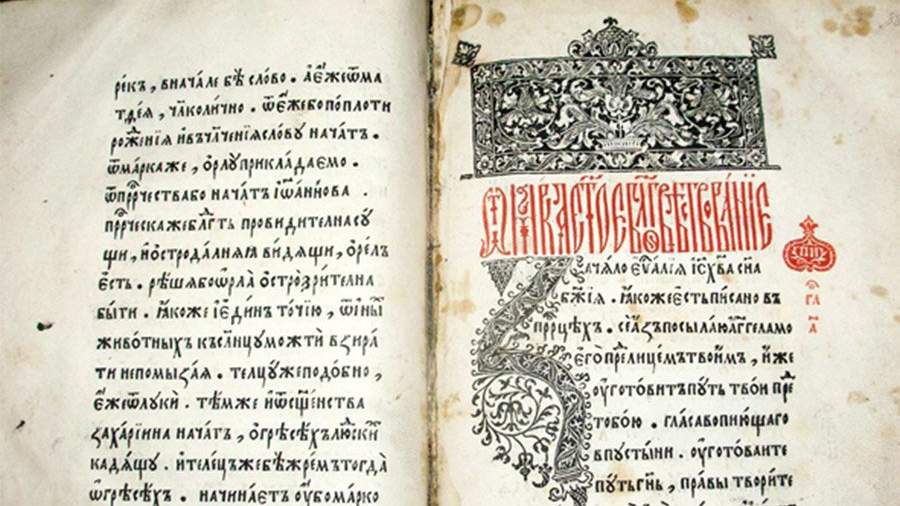 ре́къ, внача́ле бѣ̀ сло́во. аѐжеѿма
тде́я, чл҃ко личнo. ѿе́жебопоплоти
рож҃енїѧ ивъчл҃ченїѧсло́ву нача́тъ.
ѿма́рка же, ѻрлу̀прикла́даемо.
ѿпрⷪ҇ро́чествабо нача́тъ іѡа́ннова.
прⷪ҇ро́ческа жебл҃гть прови́дителнасу́
щи, и остродална́ѧ ви́дѧщи, ѻре́лъ
е́сть. рѣ́шѧбоѻрла̀ о́строзри́телна
бы́ти. ꙗ́коже іеди́нъ то́чїю, ѿины́
живо́тныхъ къ сл҃нцу мо́жти взира́
ти непомыза́ѧ. телцу́жеподо́бно,
е́жеѿлукѝ. тѣ́мже иѿсщ҃енства
заха́рїина нача́тъ, ѻгрѣсѣ́хълюⷣ҇ски́
кадѧ́щу. ителе́цъжебѣжре́мътогда̀
ѡгрѣсѣ́хъ. начина́етъ ѹ҆́бома́рко
ѿ
зача́ло еѵⷢ҇а́лїѧ іс҃ъх҃ва сн҃а
бж҃їѧ. ꙗ́коже е́стьпи́сано въ
прⷪ҇рцѣхъ. се а́зъ посыла́ю а́гг҃ела мо
его̀ пре́лице́мътвои́мъ, и́же
ѹ҆гото́витъ пу́ть тво́и пре́
тобо́ю. гла́са вопию́щаго
впусты́ни. ѹ҆гото́ваите
пу́ть гн҃ь, пра́вы твори́те